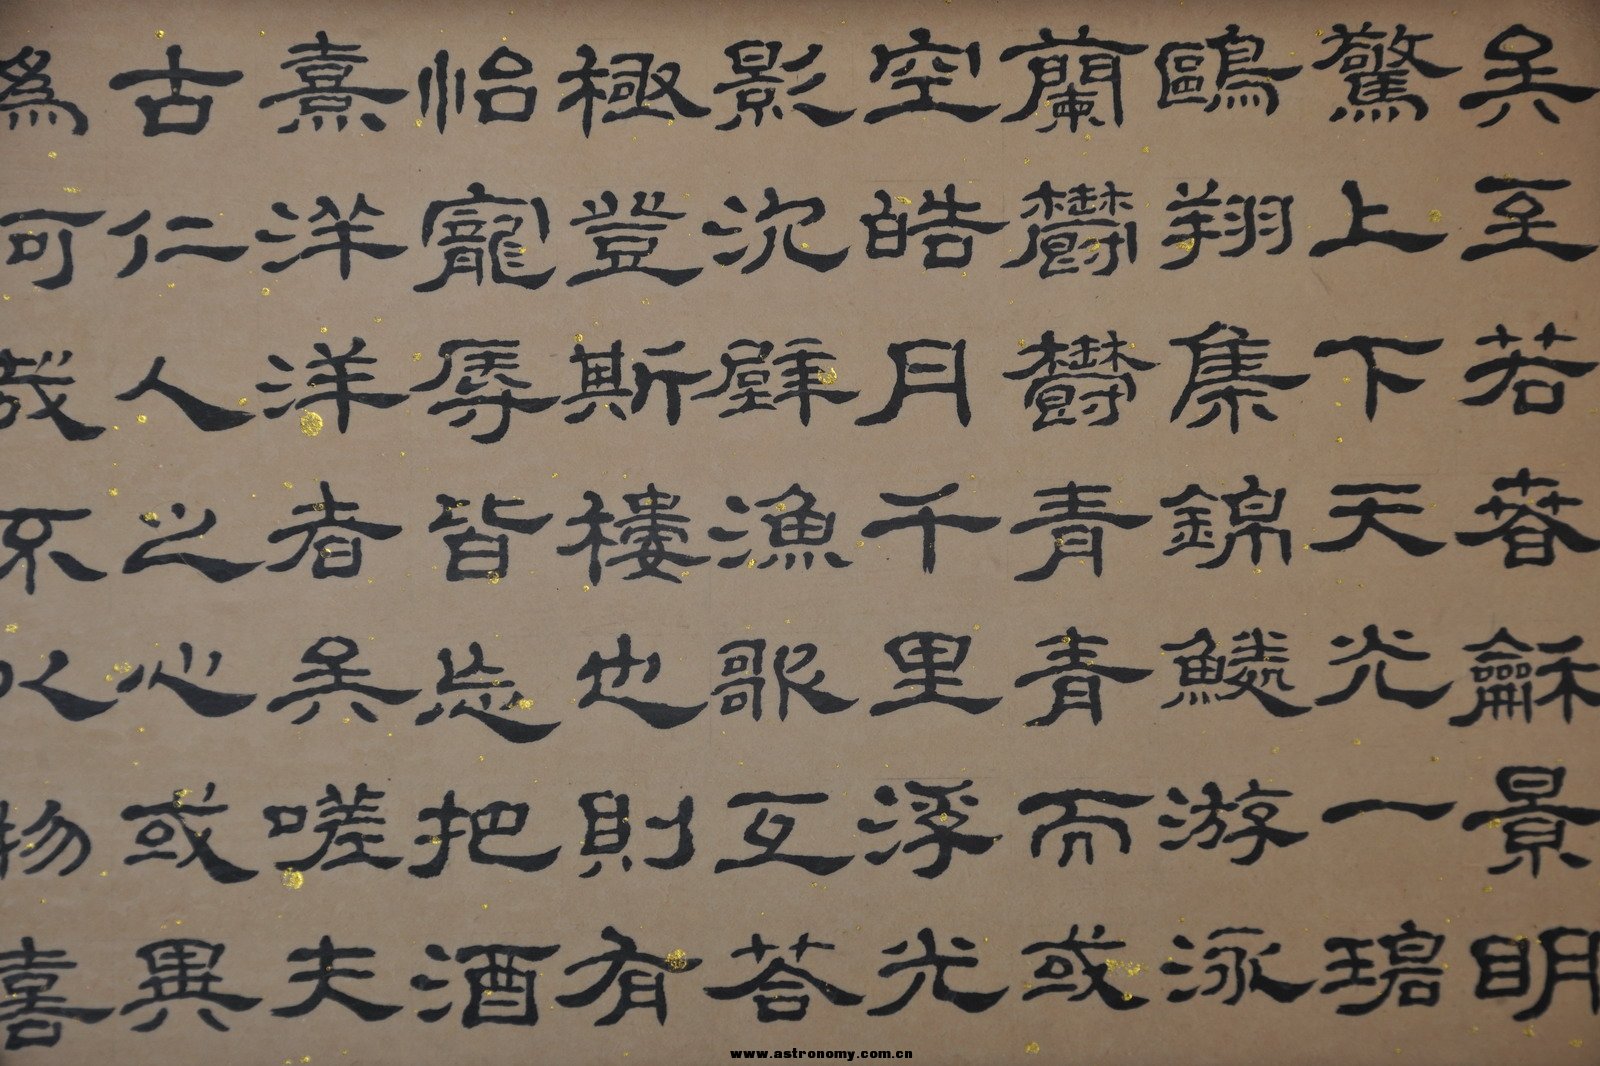 矣至若春龢景明
驚上下天光一碧
鷗翔集錦鱗游泳
蘭鬱鬱青青而或
空皓月千里浮光
影沈璧漁歌互荅
極登斯樓也則有
怡寵辱皆忘把酒
熹洋洋者矣嗟夫
古仁人之心或異
爲何哉不以物喜
www.astronomy.com.cn